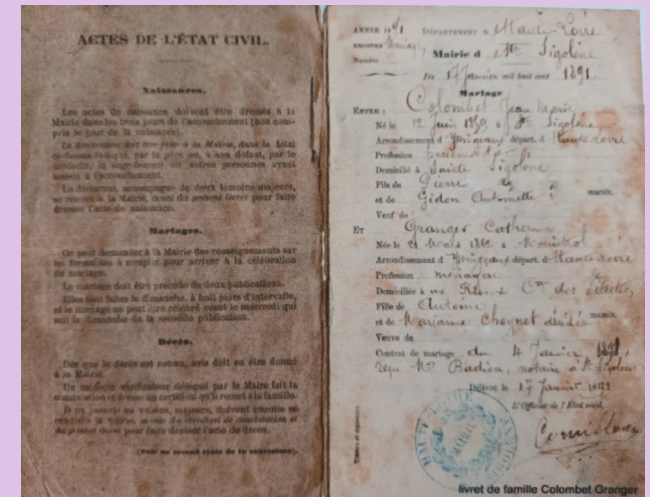 ACTES DE L'ÉTAT CIVIL.
Naissances.
Les actes de naissance doivent être dressés à la
Mairie dans les trois jours de l'accouchement (non com-
pris le jour de la naissance).
La déclaration doit être faite à la Mairie, dans le délai
ci-dessus indiqué, par le père ou, à son défaut, par le
médecin, la sage-femme ou autres personnes ayant
assisté à l'accouchement.
Le déclarant, accompagné de deux témoins majeurs,
se rendra à la Mairie, muni du présent livret pour faire
dresser l'acte de naissance.
Mariages.
On peut demander à la Mairie des renseignements sur
les formalités à remplir pour arriver à la célébration
du mariage.
Le mariage doit être précédé de deux publications.
Elles sont faites le dimanche, à huit jours d'intervalle,
et le mariage ne peut être célébré avant le mercredi qui
suit le dimanche de la seconde publication.
Décès.
Dès que le décès est connu, avis doit en être donné
à la Mairie.
Un médecin vérificateur délégué par le Maire fait la
constatation et dresse un certificat qu'il remet à la famille.
majeurs, doivent ensuite se
rendre à la Mairie, munis du certificat de constatation et
du présent livret pour faire dresser l'acte de décès.
(Voir au second recto de la couverture).
ANNÉE 1891 DÉPARTEMENT d Haute Loire
REGISTRE
Numéro
Mairie d Ste Sigolène
Du 17 Janvier mil huit cent 1891
Mariage
ENTRE : Colombet Jean Marie
Né le 12 Juin 1859 à Ste Sigolène
Arrondissement d'Yssingeaux départ. d Haute Loire
Profession
Domicilié à Sainte Sigolène
Fils de Pierre
et de Gidon Antoinette mariés.
Veuf de
ET Granger Catherine
Née le Mars à Monistrol
Arrondissement d'Yssingeaux départ. d Haute Loire
Profession ménagère
Domiciliée à
Fille de Antoine
et de Marianne Cheynet décédée mariés.
Veuve de
Contrat de mariage du 4 Janvier 1891
reçu Me Badiou, notaire à Ste Sigolène
Délivré le 17 Janvier 1891
L'Officier de l'État civil,
MAIRIE
livret de famille Colombet Granger